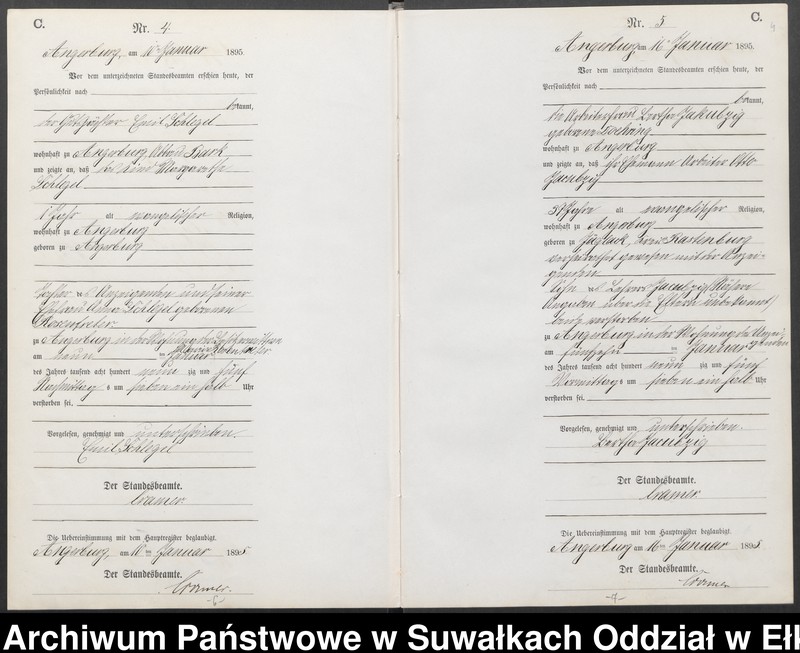 C.
Nr. 4
Angerburg, am 10ten Januar 1895.
Vor dem unterzeichneten Standesbeamten erschien heute, der
Persönlichkeit nach
bekannt,
der Emil Schlegel
wohnhaft zu Angerburg,
und zeigte an, daß das Kind Margarethe
Schlegel
1 Jahr alt evangelischer Religion,
wohnhaft zu Angerburg
geboren zu Angerburg
Tochter des Anzeigenden und seiner
Ehefrau Schlegel geborenen
zu Angerburg in
am neun ten Januar
des Jahres tausend acht hundert neun zig und fünf
Nachmittag s um sieben ein halb Uhr
verstorben sei.
Vorgelesen, genehmigt und unterschrieben.
Emil Schlegel
Der Standesbeamte.
Cramer.
Die Uebereinstimmung mit dem Hauptregister beglaubigt.
Angerburg, am 10ten Januar 1895
Der Standesbeamte.
Cramer.
Nr. 5
C.
Angerburg am 16 Januar 1895.
Vor dem unterzeichneten Standesbeamten erschien heute, der
Persönlichkeit nach
bekannt,
die Arbeiterfrau Bertha Jakubzig
geborene
wohnhaft zu Angerburg
und zeigte an, daß ihr Ehemann Arbeiter Otto
Jacubzig
Jahre alt evangelischer Religion,
wohnhaft zu Angerburg
geboren zu Jäglack, Kreis Rastenburg
verheirathet gewesen mit der Anzei-
genden
Sohn des Lehrers Jacubzig Nähere
Angaben über die Eltern unbekannt
verstorben
zu Angerburg in der Wohnung der Anzei-
genden
am fünfzehn ten Januar
des Jahres tausend acht hundert neun zig und fünf
Vormittag s um sieben ein halb Uhr
verstorben sei.
Vorgelesen, genehmigt und unterschrieben.
Bertha Jacubzig
Der Standesbeamte.
Cramer
Die Uebereinstimmung mit dem Hauptregister beglaubigt.
Angerburg am 16ten Januar 1895
Der Standesbeamte.
Cramer
Archiwum Państwowe w Suwałkach Oddział w Ełk